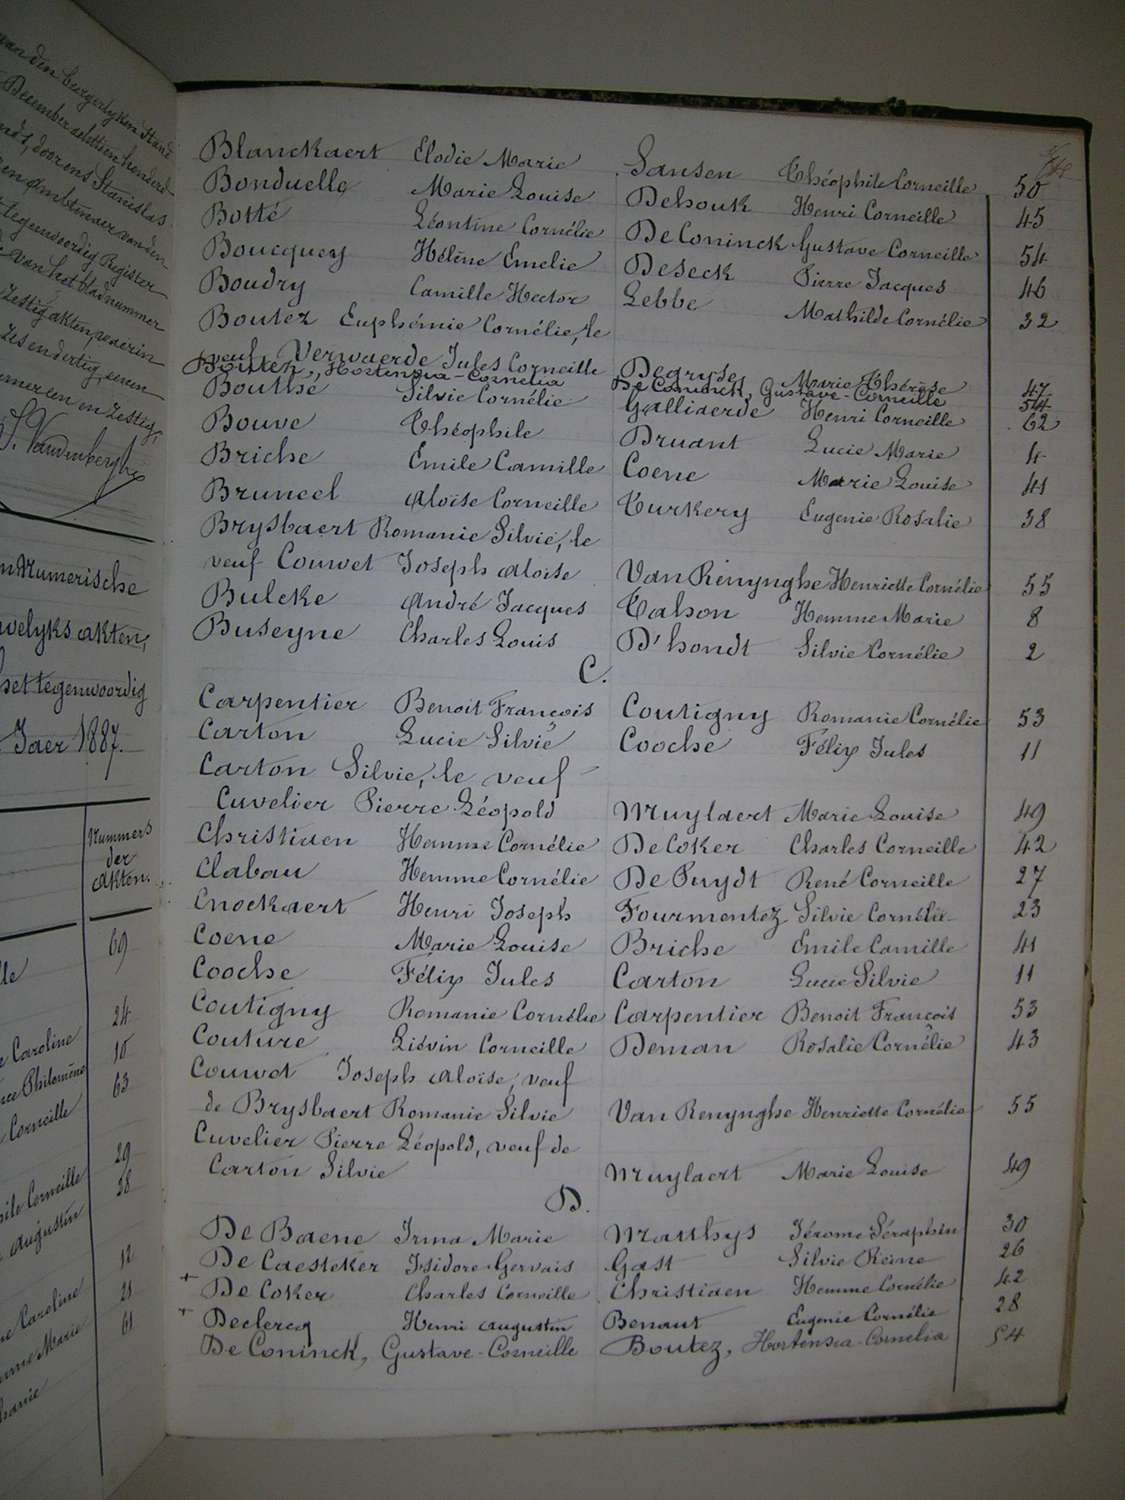 van den burgerlyken Stand
December achttien honderd
door ons Stanislas
ambtenaer van den
tegenwoordig Register
van het bladnummer
Zestig akten, waerin
Zes en dertig, eenen
nummer een en zestig,
S. Vandenberghe
Numerische
welyks akten,
het tegenwoordig
Jaer 1887.
Nummers
der
akten.
69
24
Caroline 10
Philomène 63
Corneille
29
Corneille 38
Augustin
12
Caroline 21
Marie 61
Blanckaert Elodie Marie Sansen Théophile Corneille 50
Bonduelle Marie Louise Dehouk Henri Corneille 45
Botté Léontine Cornélie De Coninck Gustave Corneille 54
Boucquey Hélène Emelie Deseck Pierre Jacques 46
Boudry Camille Hector Lebbe Mathilde Cornélie 32
Boutez Euphémie Cornélie, le
veuf Verwaerde Jules Corneille Degryse Marie Thérèse 47
Boutez, Hortensia-Cornelia De Coninck, Gustave-Corneille 54
Bouthé Silvie Cornélie Galliaerde Henri Corneille 62
Bouve Théophile Druant Lucie Marie 4
Briche Emile Camille Coene Marie Louise 41
Bruneel Aloïse Corneille Turkery Eugenie Rosalie 38
Brysbaert Romanie Silvie, le
veuf Couvot Joseph Aloïse Van Renynghe Henriette Cornélie 55
Bulcke André Jacques Tahon Hemme Marie 8
Buseyne Charles Louis D'hondt Silvie Cornélie 2
C.
Carpentier Benoit François Coutigny Romanie Cornélie 53
Carton Lucie Silvie Cooche Félix Jules 11
Carton Silvie, le veuf
Cuvelier Pierre Léopold Muylaert Marie Louise 49
Christiaen Hemme Cornélie De Coker Charles Corneille 42
Clabau Hemme Cornélie De Puydt René Corneille 27
Cnockaert Henri Joseph Fourmentez Silvie Cornélie 23
Coene Marie Louise Briche Emile Camille 41
Cooche Félix Jules Carton Lucie Silvie 11
Coutigny Romanie Cornélie Carpentier Benoit François 53
Couture Liévin Corneille Deman Rosalie Cornélie 43
Couvot Joseph Aloïse, veuf
de Brysbaert Romanie Silvie Van Renynghe Henriette Cornélie 55
Cuvelier Pierre Léopold, veuf de
Carton Silvie Muylaert Marie Louise 49
D.
De Baene Irma Marie Matthys Jérome Séraphin 30
De Caesteker Isidore Gervais Gast Silvie Reine 26
+ De Coker Charles Corneille Christiaen Hemme Cornélie 42
+ Declercq Henri Augustin Benaut Eugenie Cornélie 28
De Coninck, Gustave-Corneille Boutez, Hortensia-Cornelia 54